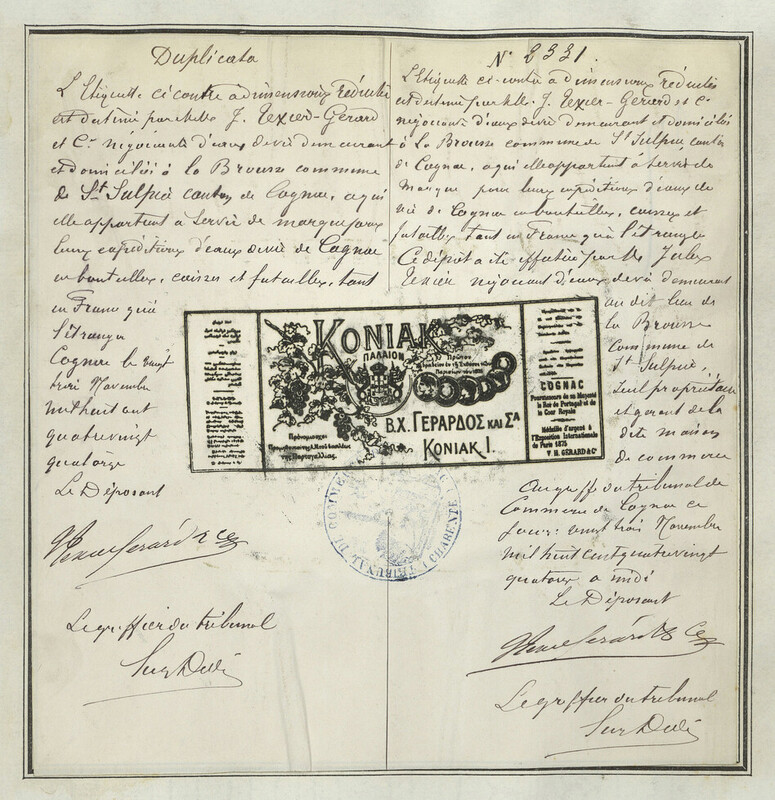 Duplicata
L'Etiquette ci contre à dimensions réduites
est détenue par M.M. J. Texier-Gérard
et Cie négociants d'eaux de vie demeurant
et domiciliés à la Brousse commune
de St Sulpice canton de Cognac, à qui
elle appartient à servir de marque pour
leurs expéditions d'eaux de vie de Cognac
en bouteilles, caisses et futailles, tant
en France qu'à
l'étranger
Cognac le vingt
trois Novembre
mil huit cent
quatre vingt
quatorze
Le Déposant
Texier Gérard & Cie
Le greffier du tribunal
No 2331.
L'Etiquette ci-contre à dimensions réduites
est détenue par M.M. J. Texier-Gérard et Cie
négociants d'eaux de vie demeurant et domiciliés
à La Brousse commune de St Sulpice canton
de Cognac, à qui elle appartient à servir de
marque pour leurs expéditions d'eaux de
vie de Cognac en bouteilles, caisses et
futailles tant en France qu'à l'étranger
Ce dépôt a été effectué par M. Jules
Texier négociant d'eaux de vie demeurant
au dit lieu de
la Brousse
commune de
St Sulpice,
seul propriétaire
et gérant de la
dite maison
de commerce
Au greffe du tribunal de
Commerce de Cognac ce
jour vingt trois Novembre
mil huit cent quatre vingt
quatorze à midi
Le Déposant
Texier Gérard & Cie
Le greffier du tribunal
ΚΟΝΙΑΚ
ΠΑΛΑΙΟΝ
Πρῶτον
Β.Χ. ΓΕΡΑΡΔΟΣ ΚΑΙ ΣΑ
ΚΟΝΙΑΚ Ι.
Προμηθευταὶ
τῆς Πορταγαλλίας.
COGNAC
Fournisseurs de sa Majesté
le Roi de Portugal et de
la Cour Royale
Médaille d'argent à
l'Exposition Internationale
de Paris 1875
V. H. GÉRARD & Cie
TRIBUNAL DE COMMERCE
CHARENTE